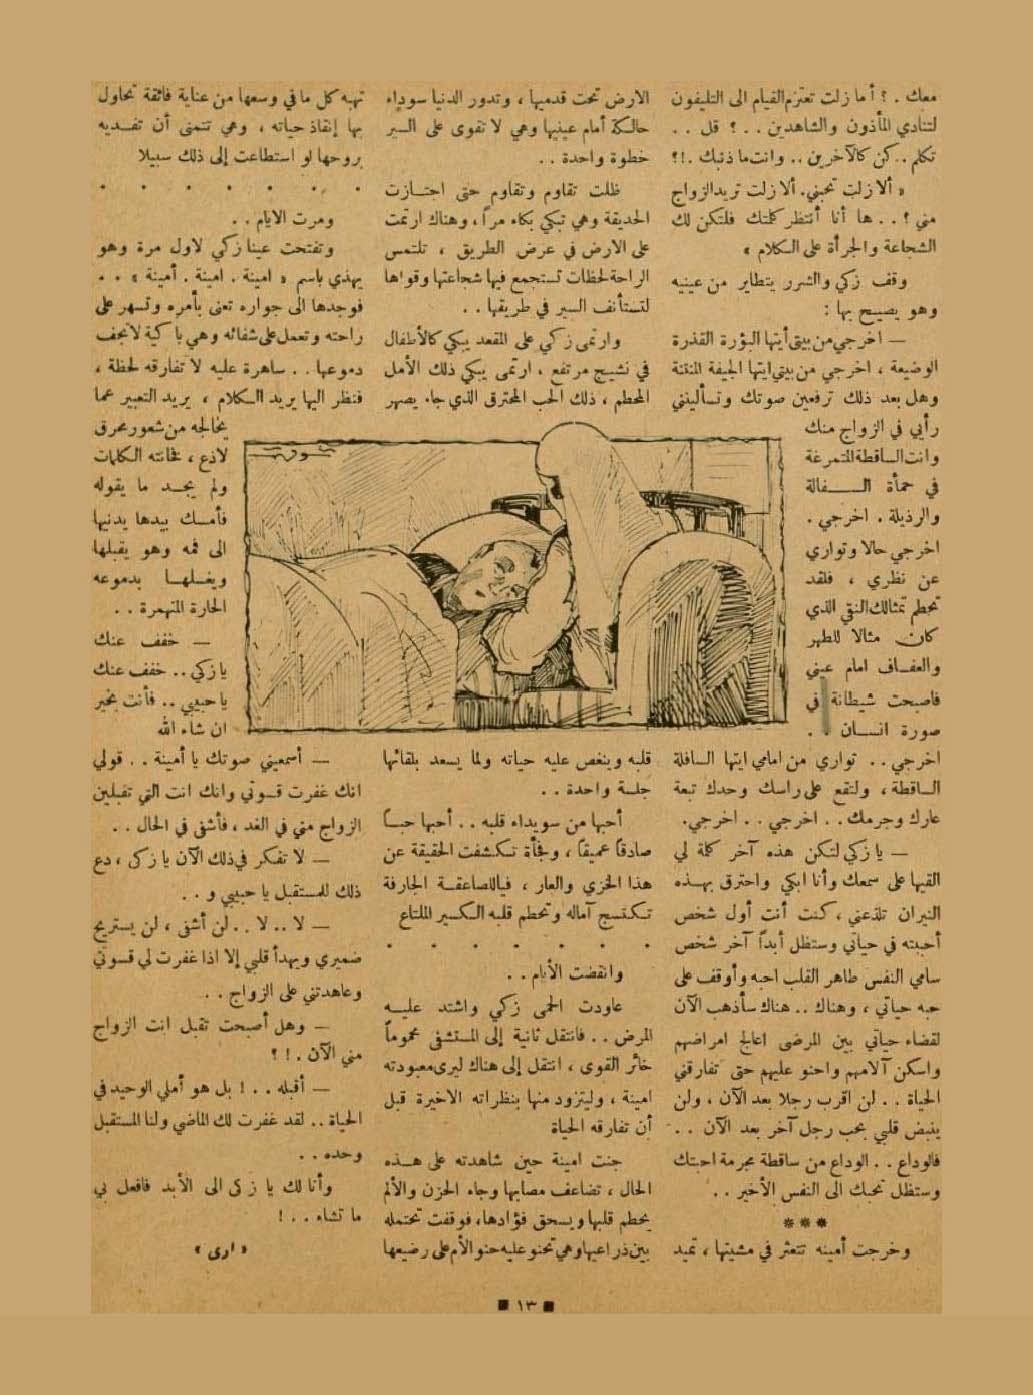 معك . ؟ أما زلت تعتزم القيام الى التليفون
لتنادي المأذون والشاهدين . . ؟ قل . .
تكلم . . كن كالآخرين . . وانت ما ذنبك . !؟
« ألا زلت تحبني . ألا زلت تريد الزواج
مني ؟ . . ها أنا أنتظر كلمتك فلتكن لك
الشجاعة والجرأة على الكلام »
وقف زكي والشرر يتطاير من عينيه
وهو يصيح بها :
— اخرجي من بيتي أيتها البؤرة القذرة
الوضيعة ، اخرجي من بيتي ايتها الجيفة المنتنة
وهل بعد ذلك ترفعين صوتك وتسألينني
رأيي في الزواج منك
وانت الساقطة المتمرغة
في حمأة السفالة
والرذيلة . اخرجي .
اخرجي حالا وتواري
عن نظري ، فلقد
تحطم تمثالك النقي الذي
كان مثالا للطهر
والعفاف امام عيني
فاصبحت شيطانة في
صورة انسان .
اخرجي . . تواري من امامي ايتها السافلة
الساقطة ، ولتقع على راسك وحدك تبعة
عارك وجرمك . . اخرجي . . اخرجي .
— يا زكي لتكن هذه آخر كلمة لي
القيها على سمعك وأنا ابكي واحترق بهذه
النيران تلذعني ، كنت أنت أول شخص
أحببته في حياتي وستظل أبداً آخر شخص
سامي النفس طاهر القلب احبه وأوقف على
حبه حياتي ، وهناك . . هناك سأذهب الآن
لقضاء حياتي بين المرضى اعالج امراضهم
واسكن آلامهم واحنو عليهم حتى تفارقني
الحياة . . لن اقرب رجلا بعد الآن ، ولن
ينبض قلبي بحب رجل آخر بعد الآن . .
فالوداع . . الوداع من ساقطة مجرمة احبتك
وستظل تحبك الى النفس الأخير . .
***
وخرجت أمينه تتعثر في مشيتها ، تميد
الارض تحت قدميها ، وتدور الدنيا سوداء
حالكة أمام عينيها وهي لا تقوى على السير
خطوة واحدة . .
ظلت تقاوم وتقاوم حتى اجتازت
الحديقة وهي تبكي بكاء مراً ، وهناك ارتمت
على الارض في عرض الطريق ، تلتمس
الراحة لحظات تستجمع فيها شجاعتها وقواها
لتستأنف السير في طريقها . .
وارتمى زكي على المقعد يبكي كالأطفال
في نشيج مرتفع ، ارتمى يبكي ذلك الأمل
المحطم ، ذلك الحب المحترق الذي جاء يصهر
قلبه وينغص عليه حياته ولما يسعد بلقائها
جلسة واحدة . .
أحبها من سويداء قلبه . . أحبها حباً
صادقاً عميقاً ، وفجأة تكشفت الحقيقة عن
هذا الخزي والعار ، فياللصاعقة الجارفة
تكتسح آماله وتحطم قلبه الكسير الملتاع
. . . . . . .
وانقضت الأيام . .
عاودت الحمى زكي واشتد عليه
المرض . . فانتقل ثانية إلى المستشفى محموماً
خائر القوى ، انتقل إلى هناك ليرى معبودته
امينة ، وليتزود منها بنظراته الاخيرة قبل
أن تفارقه الحياة
جنت امينة حين شاهدته على هذه
الحال ، تضاعف مصابها وجاء الحزن والألم
يحطم قلبها ويسحق فؤادها ، فوقفت تحتمله
بين ذراعيها وهي تحنو عليه حنو الأم على رضيعها
تهبه كل ما في وسعها من عناية فائقة تحاول
بها إنقاذ حياته ، وهي تتمنى أن تفديه
بروحها لو استطاعت إلى ذلك سبيلا
. . . . . . .
ومرت الايام . .
وتفتحت عينا زكي لاول مرة وهو
يهذي باسم « امينة . امينة . أمينة » . .
فوجدها الى جواره تعنى بأمره وتسهر على
راحته وتعمل على شفائه وهي باكية لا تجف
دموعها . . ساهرة عليه لا تفارقه لحظة ،
فنظر اليها يريد الكلام ، يريد التعبير عما
يخالجه من شعور محرق
لاذع ، فخانته الكلمات
ولم يجد ما يقوله
فأمسك بيدها يدنيها
الى فمه وهو يقبلها
ويغسلها بدموعه
الحارة المنهمرة . .
— خفف عنك
يا زكي . . خفف عنك
يا حبيبي . . فأنت بخير
ان شاء الله
— أسمعيني صوتك يا أمينة . . قولي
انك غفرت قسوتي وانك انت التي تقبلين
الزواج مني في الغد ، فأشفى في الحال . .
— لا تفكر في ذلك الآن يا زكى ، دع
ذلك للمستقبل يا حبيبي و . .
— لا . . لا . . لن أشفى ، لن يستريح
ضميري ويهدأ قلبي إلا اذا غفرت لي قسوتي
وعاهدتني على الزواج . .
— وهل أصبحت تقبل انت الزواج
مني الآن . !؟
— أقبله . . ! بل هو أملي الوحيد في
الحياة . . لقد غفرت لك الماضي ولنا المستقبل
وحده . .
وأنا لك يا زكى الى الأبد فافعل بي
ما تشاء . . !
« ارى »
١٣